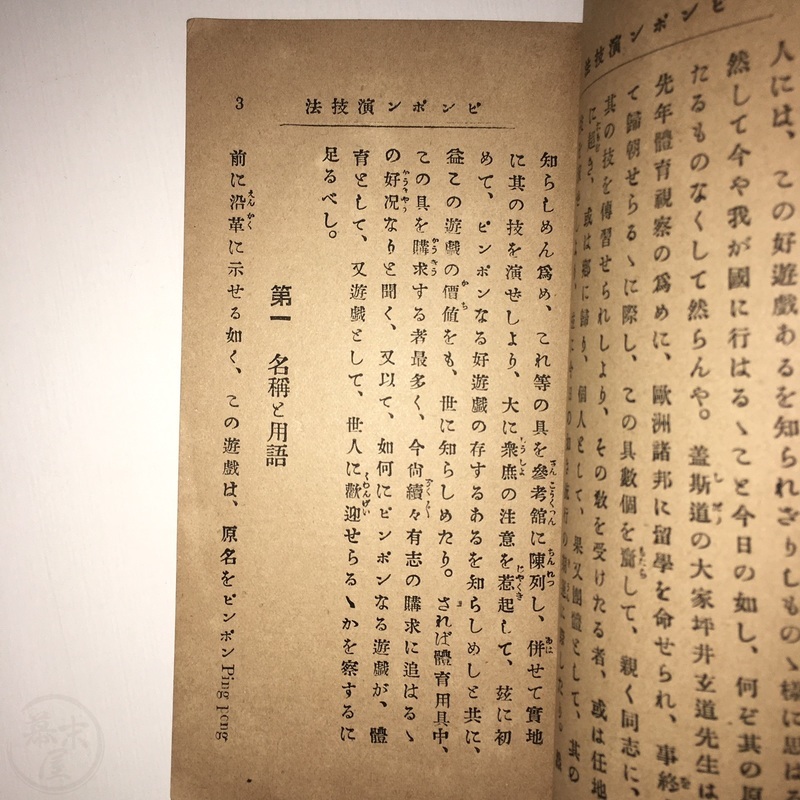 ピンポン演技法
人には、この好遊戯あるを知られざりしものヽ樣に思はる
然して今や我が國に行はるヽこと今日の如し、何ぞ其の原
たるものなくして然らんや。蓋斯道の大家坪井玄道先生は
先年體育視察の爲めに、歐洲諸邦に留學を命せられ、事終
て歸朝せらるヽに際し、この具數個を齎して、親く同志に、
其の技を傳習せられしより、その敎を受けたる者、或は任地
に赴き、或は鄕に歸り、個人として、果又團體として、其の
ピンポン演技法
3
知らしめん爲め、これ等の具を參考舘に陳列し、併せて實地
に其の技を演ぜしより、大に衆庶の注意を惹起して、玆に初
めて、ピンポンなる好遊戯の存するあるを知らしめしと共に、
益この遊戯の價値をも、世に知らしめたり。されば體育用具中、
この具を購求する者最多く、今尙續々有志の購求に追はるヽ
の好况なりと聞く、又以て、如何にピンポンなる遊戯が、體
育として、又遊戯として、世人に歡迎せらるヽかを察するに
足るべし。
第一 名稱と用語
前に沿革に示せる如く、この遊戯は、原名をピンポンPing pong
幕末屋